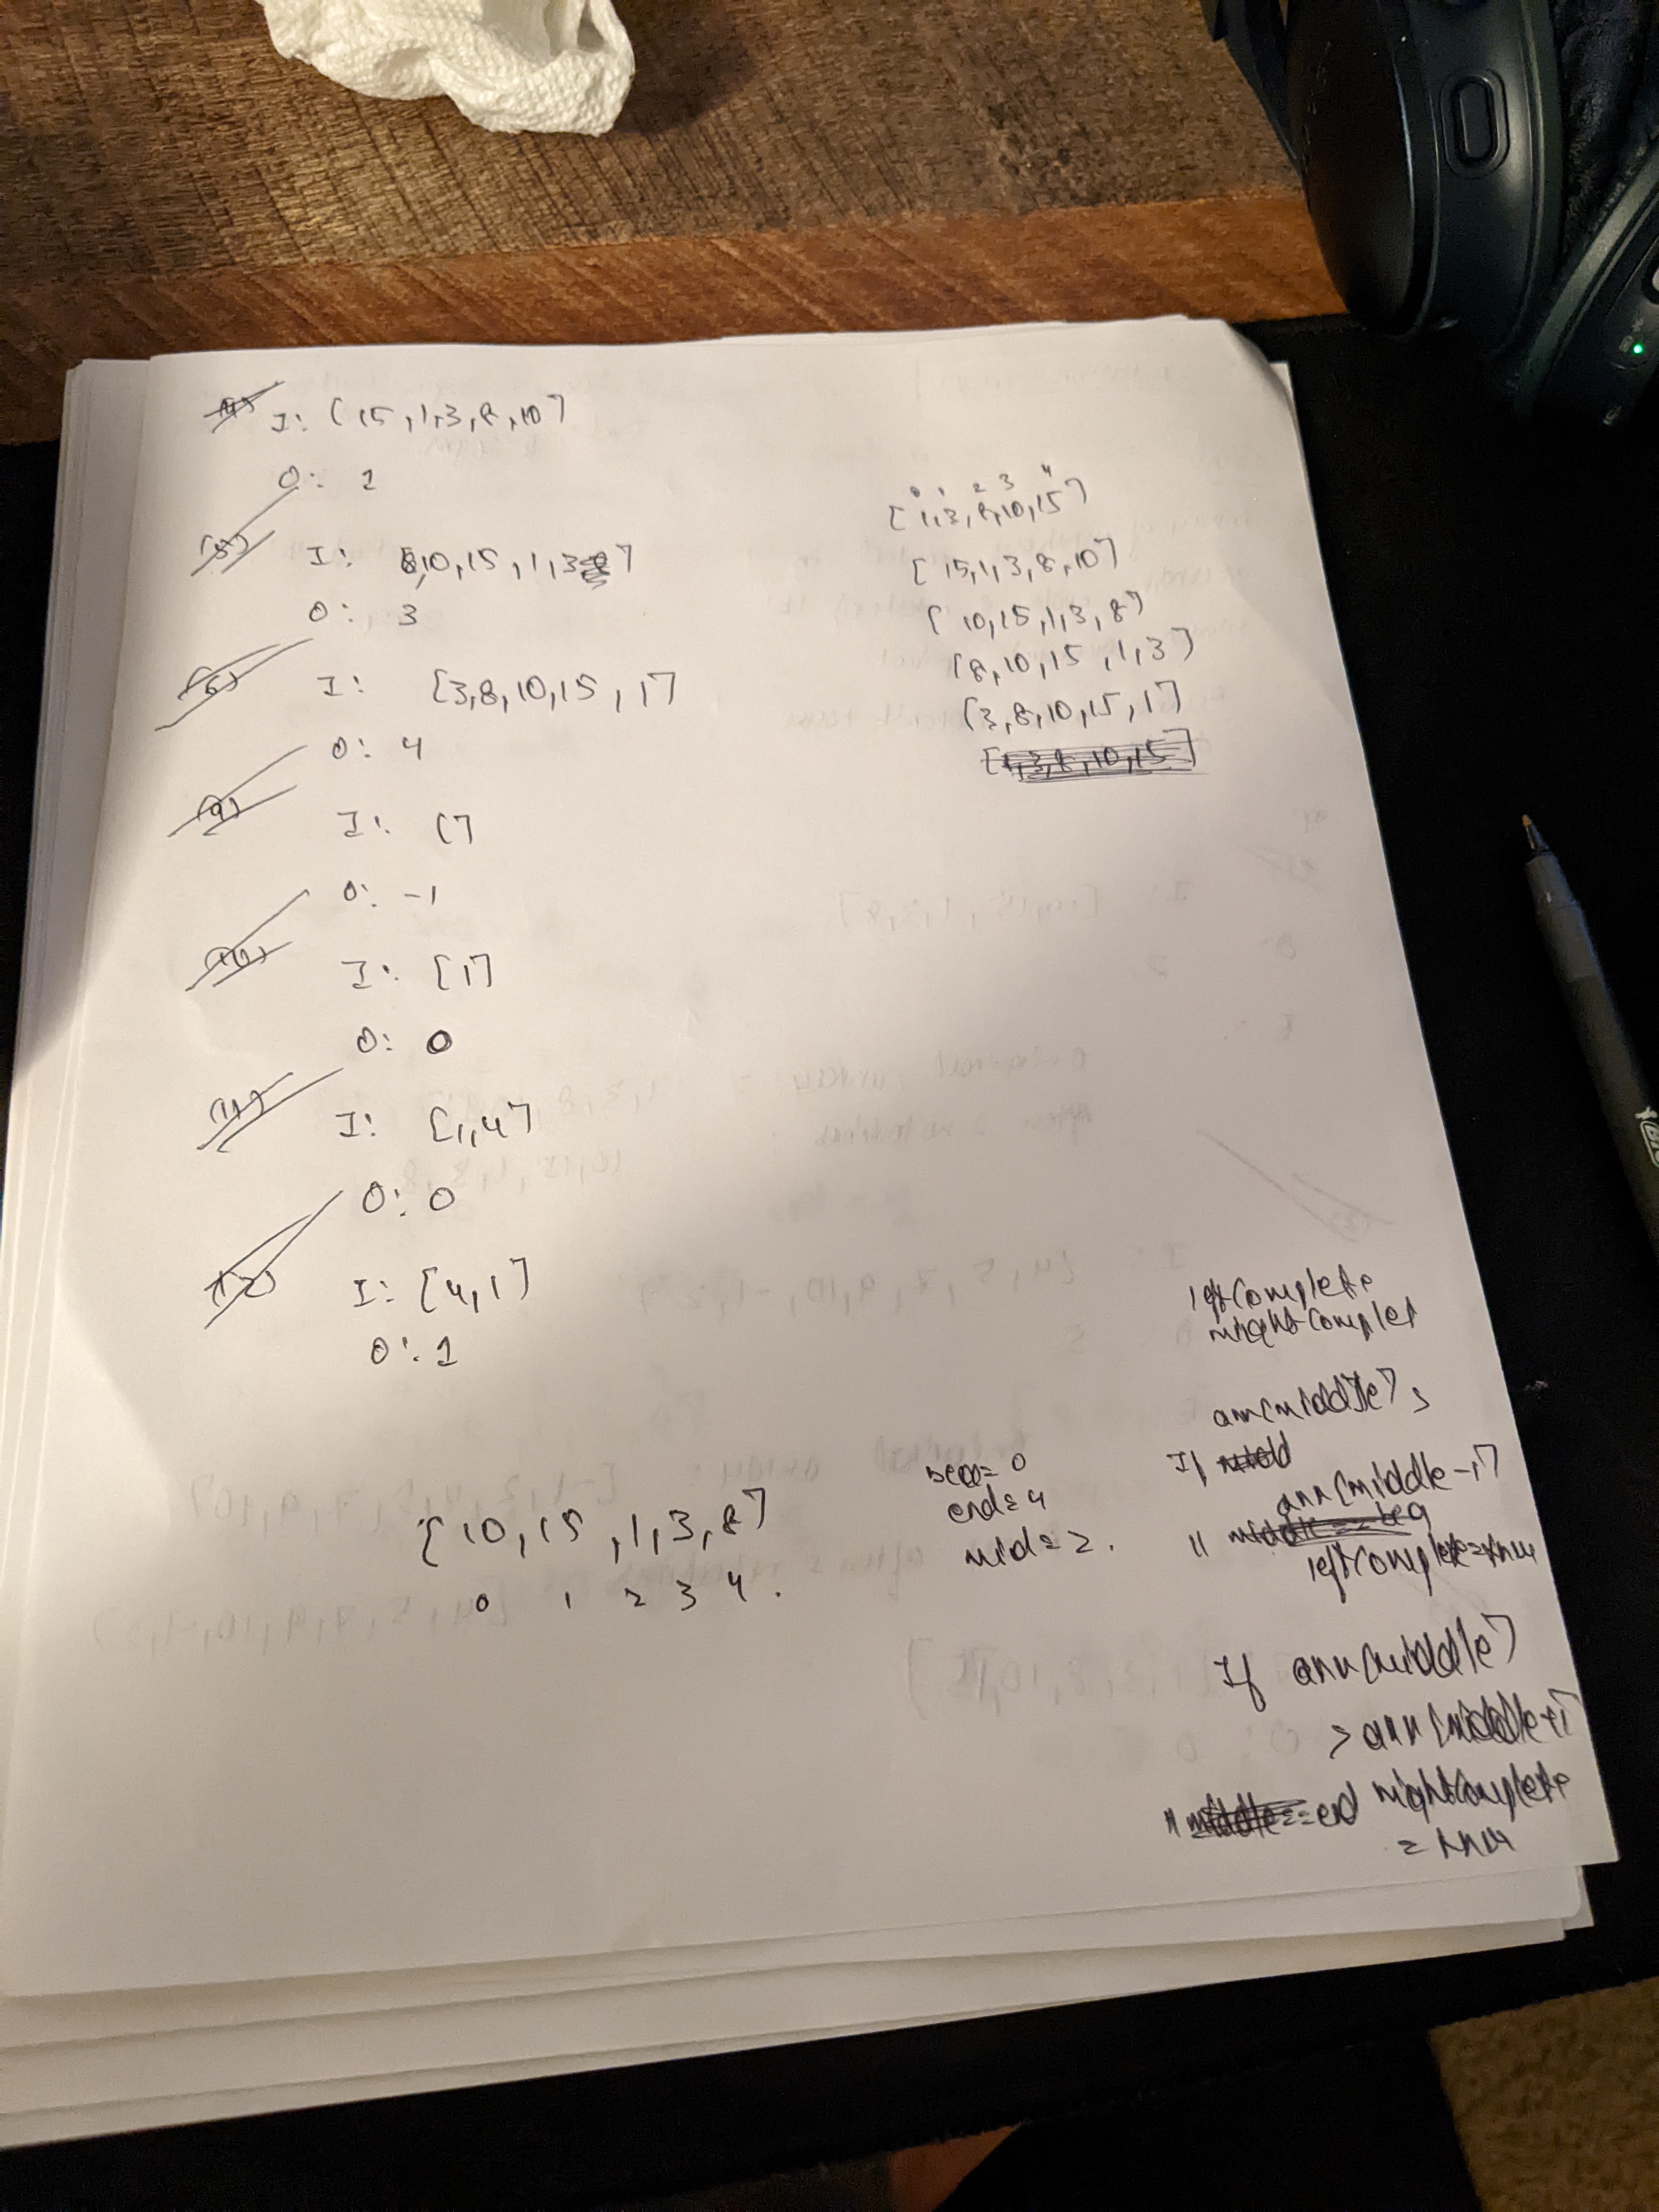 (4) I: [15, 1, 3, 8, 10]
O: 1
(5) I: 8, 10, 15, 1, 3]
O: 3
(6) I: [3, 8, 10, 15, 1]
O: 4
(9) I: []
O: -1
(10) I: [1]
O: 0
(11) I: [1, 4]
O: 0
(12) I: [4, 1]
O: 1
0 1 2 3 4
[1, 3, 8, 10, 15]
[15, 1, 3, 8, 10]
[10, 15, 1, 3, 8]
[8, 10, 15, 1, 3]
[3, 8, 10, 15, 1]
[1, 3, 8, 10, 15]
[10, 15, 1, 3, 8]
0 1 2 3 4.
= 0
end = 4
mid = 2.
leftcomplete
rightcomplet
arr[middle] >
If
arr[middle-1]
|| middle == beg
leftcomplete = true
If arr[middle]
> arr[middle+1]
|| middle == end rightcomplete
= true
BIC